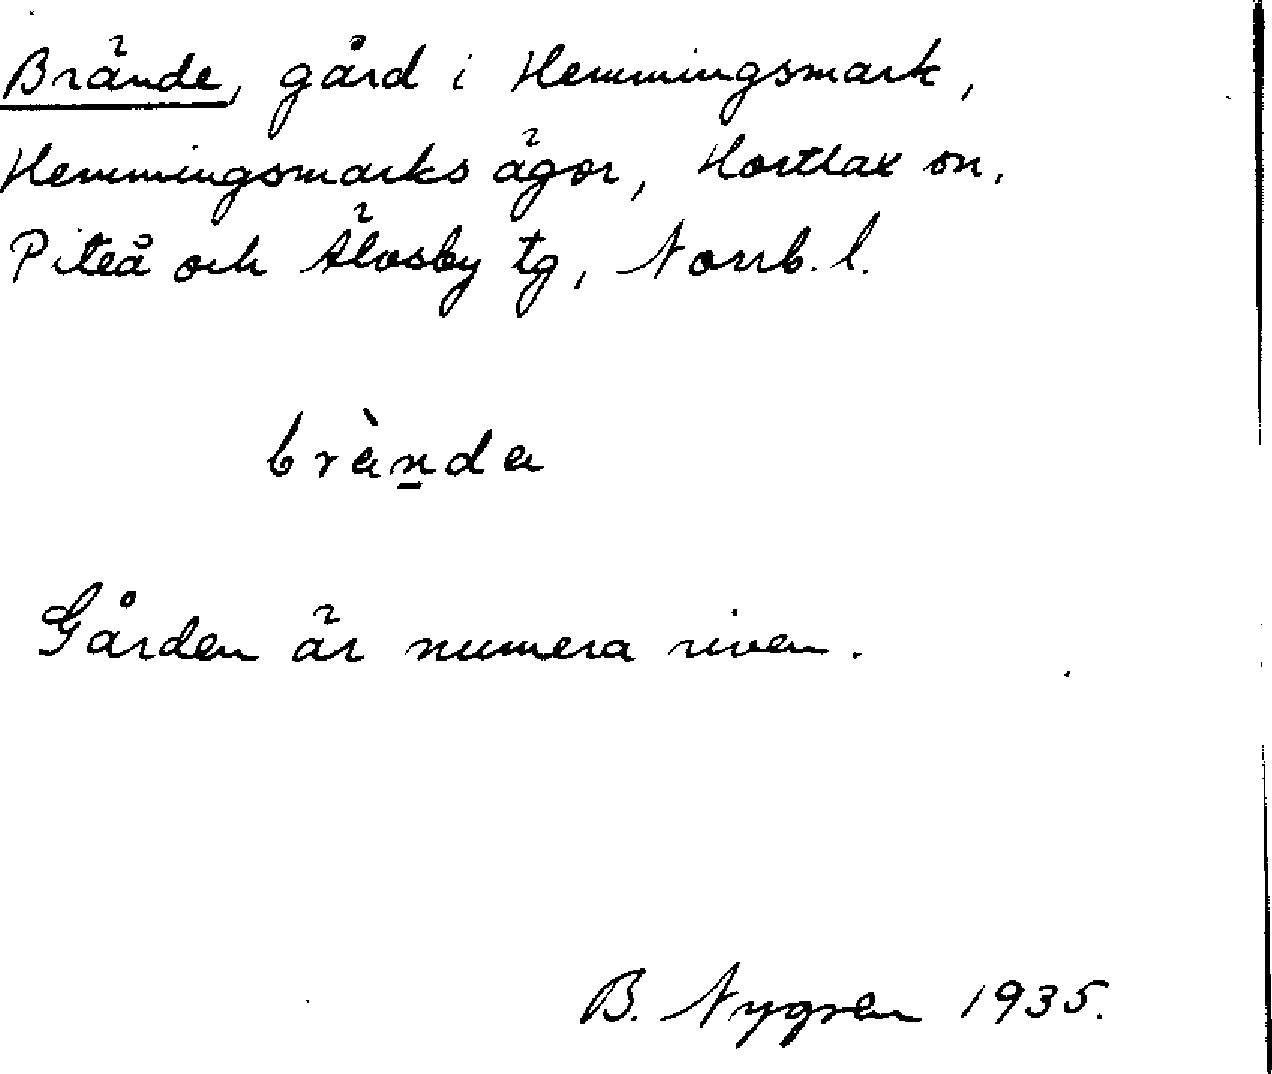 Brände, gård i Hemmingsmark,
Hemmingsmarks ägor, Hortlax sn,
Piteå och Älvsby tg, Norrb. l.
brànda
Gården är numera riven.
B. Nygren 1935.